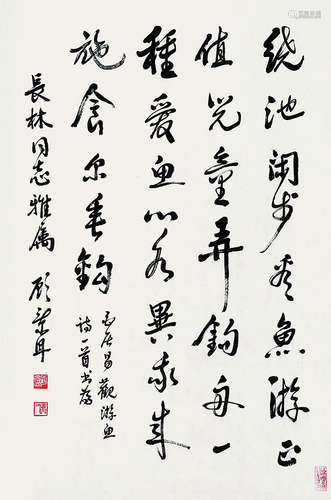 绕池闲步看鱼游正
值儿童弄钓舟一
種爱鱼心各異我来
施食尔垂鈎
白居易觀游鱼
诗一首书为
長林同志雅属 顾棐冉